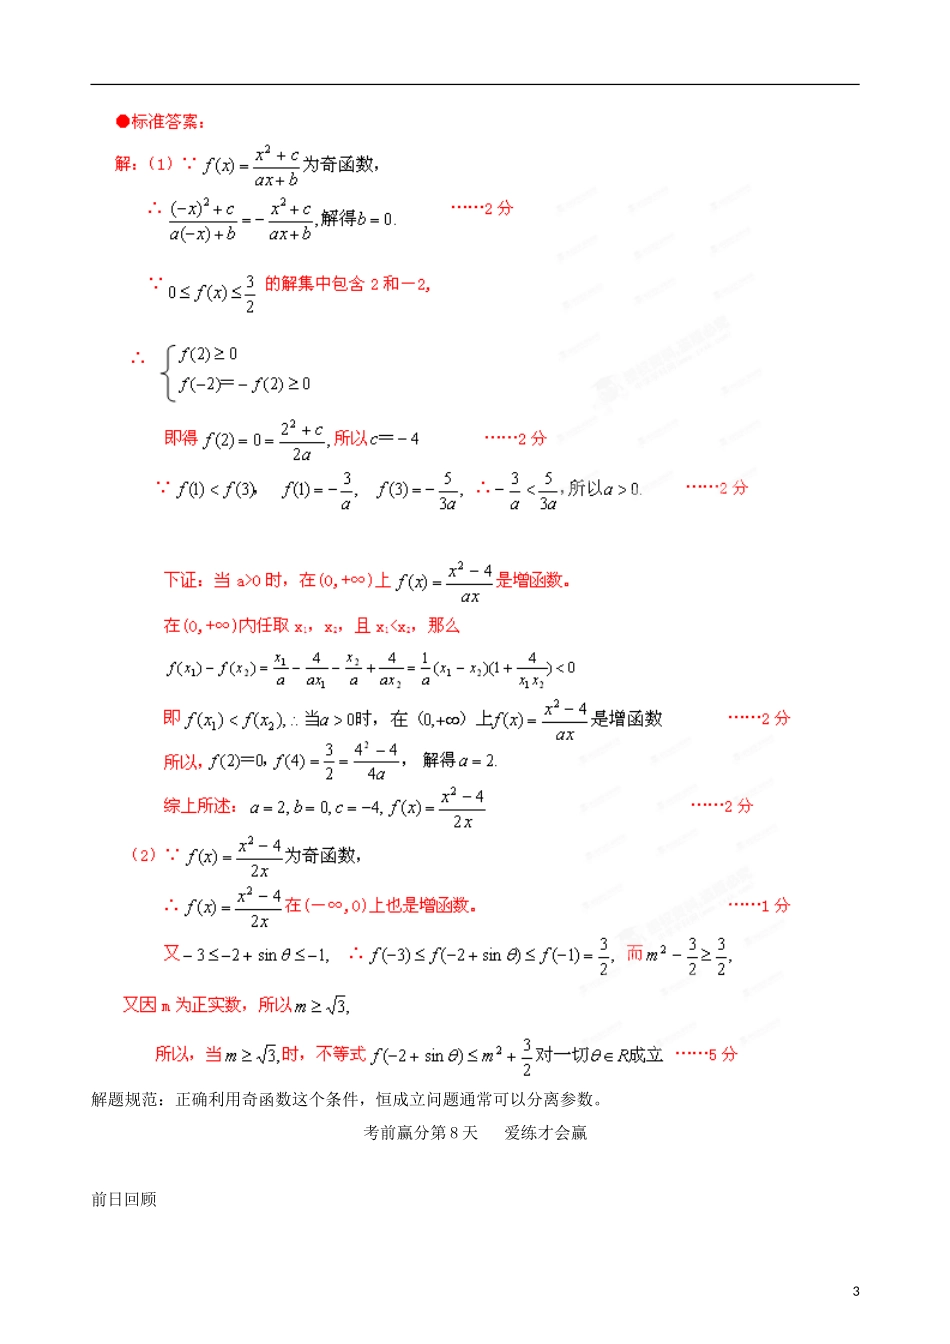 ●标准答案:
解:(1)∵ f(x)=(x²+c)/(ax+b)为奇函数,
∴ ((−x)²+c)/(a(−x)+b)=−(x²+c)/(ax+b),解得b=0. ……2分
∵ 0≤f(x)≤3/2 的解集中包含2和－2,
∴ {f(2)≥0
f(−2)=−f(2)≥0
即得f(2)=0=(2²+c)/(2a),所以c=−4 ……2分
∵ f(1)<f(3), f(1)=−3/a, f(3)=−5/(3a), ∴−3/a<5/(3a),所以a>0. ……2分
下证:当a>0时,在(0,+∞)上f(x)=(x²−4)/(ax)是增函数。
在(0,+∞)内任取x₁,x₂,且x₁<x₂,那么
f(x₁)−f(x₂)=x₁/a−4/(ax₁)−x₂/a+4/(ax₂)=1/a(x₁−x₂)(1+4/(x₁x₂))<0
即f(x₁)<f(x₂),∴当a>0时,在(0,+∞)上f(x)=(x²−4)/(ax)是增函数 ……2分
所以,f(2)=0,f(4)=3/2=(4²−4)/(4a), 解得a=2.
综上所述:a=2,b=0,c=−4,f(x)=(x²−4)/(2x) ……2分
(2)∵ f(x)=(x²−4)/(2x)为奇函数,
∴ f(x)=(x²−4)/(2x)在(－∞,0)上也是增函数。 ……1分
又−3≤−2+sinθ≤−1, ∴f(−3)≤f(−2+sinθ)≤f(−1)=3/2, 而m²−3/2≥3/2,
又因m为正实数,所以m≥√3,
所以,当m≥√3,时,不等式f(−2+sinθ)≤m²+3/2对一切θ∈R成立 ……5分
解题规范：正确利用奇函数这个条件，恒成立问题通常可以分离参数。
考前赢分第8天 爱练才会赢
前日回顾
3